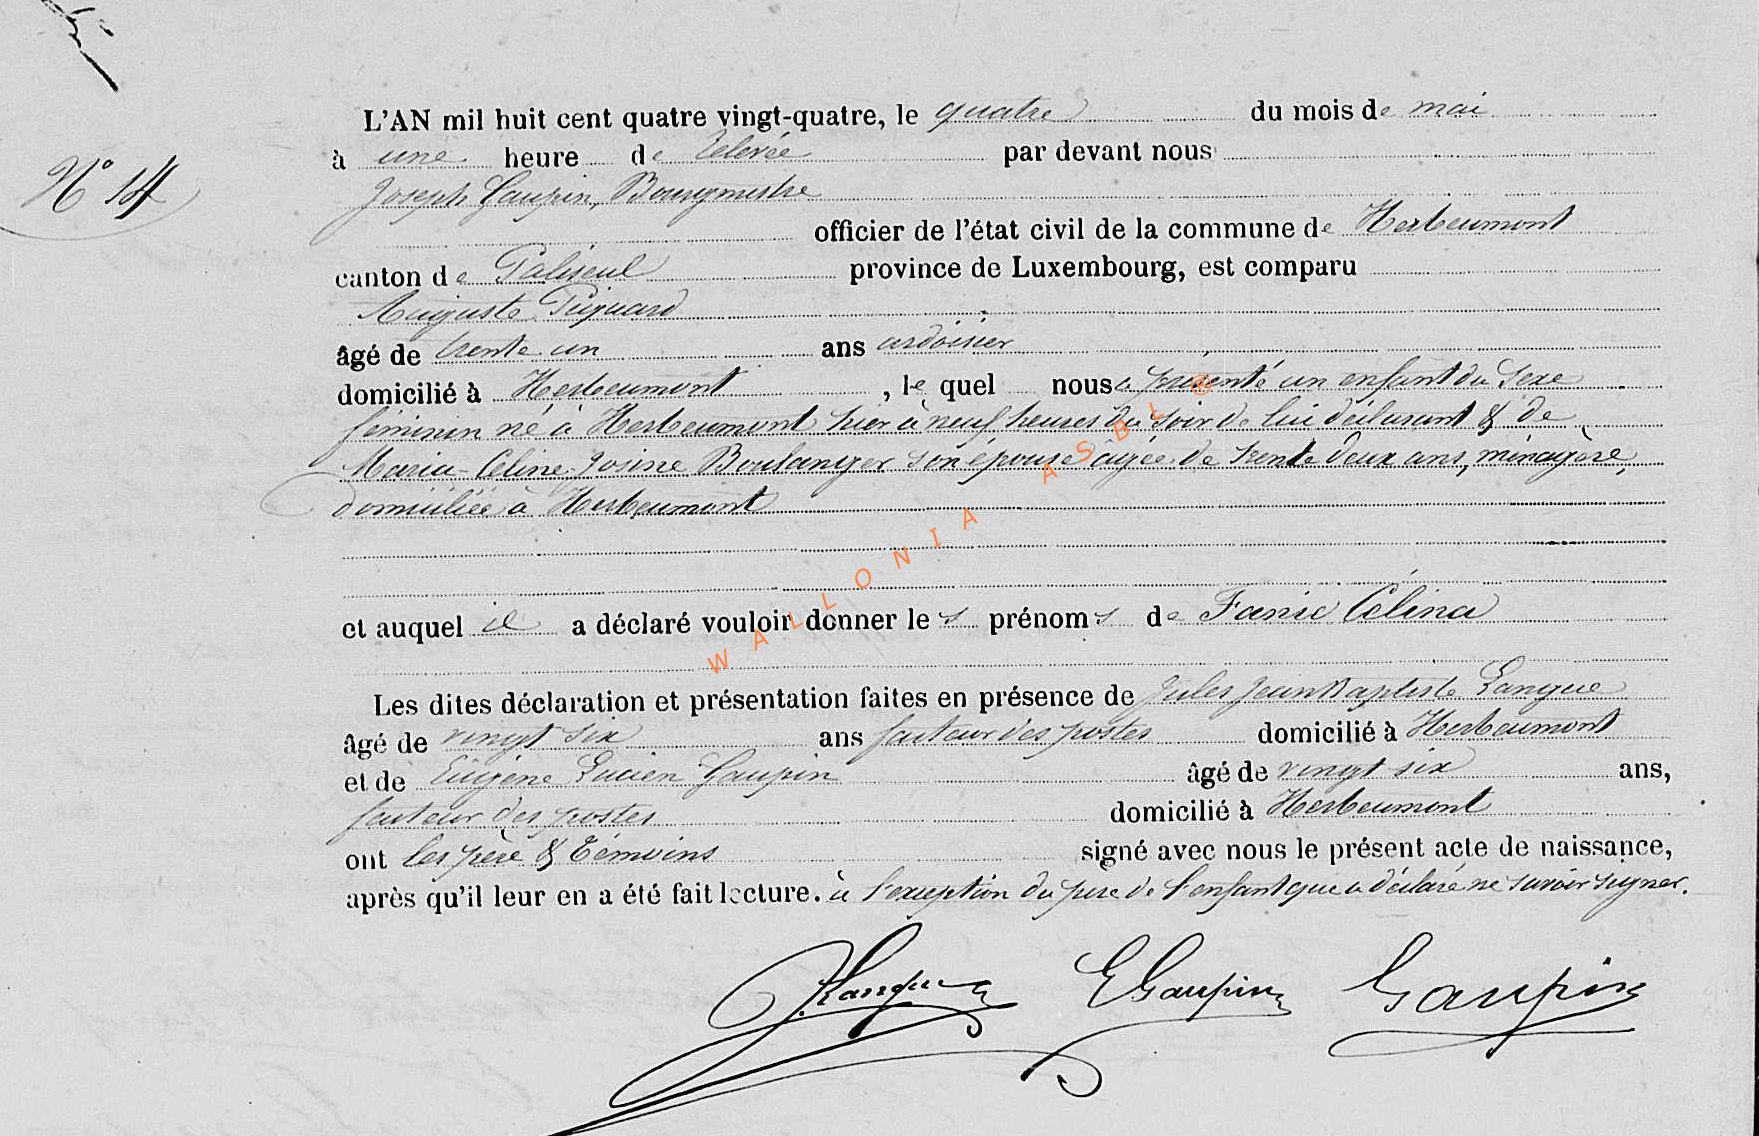 L'AN mil huit cent quatre vingt-quatre, le quatre du mois de mai
N° 14
à une heure de relevée par devant nous
Joseph Gaupin, Bourgmestre
officier de l'état civil de la commune de Herbeumont
canton de Paliseul province de Luxembourg, est comparu
Auguste Piquard
âgé de trente un ans ardoisier
domicilié à Herbeumont, le quel nous a présenté un enfant du Sexe
féminin né à Herbeumont hier à neuf heures du soir de lui déclarant & de
Maria-Céline Josine Boulanger son épouse âgée de trente deux ans, ménagère,
domiciliée à Herbeumont
et auquel il a déclaré vouloir donner les prénoms de Fanie Célina
Les dites déclaration et présentation faites en présence de Jules Jean Baptiste Langue
âgé de vingt six ans facteur des postes domicilié à Herbeumont
et de Eugène Lucien Gaupin âgé de vingt six ans,
facteur des postes domicilié à Herbeumont
ont les père & témoins signé avec nous le présent acte de naissance,
après qu'il leur en a été fait lecture. à l'exception du père de l'enfant que a déclaré ne savoir signer.
JLangue EGaupin Gaupin
WALLONIA ASBL ®